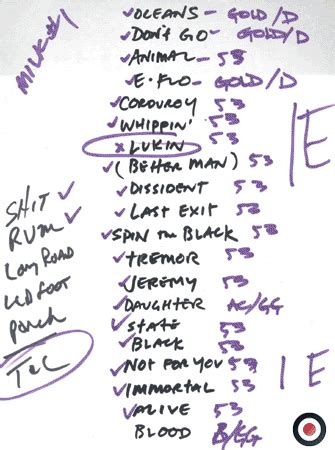 MILK #1
✓OCEANS - GOLD/D
✓DON'T GO - GOLD/D
✓ANIMAL - 53
✓E.FLO - GOLD/D
✓CORDUROY 53
✓WHIPPIN' 53
x LUKIN 53
✓(BETTER MAN) 53
✓DISSIDENT 53
✓LAST EXIT 53
✓SPIN THE BLACK 53
✓TREMOR 53
✓JEREMY 53
✓DAUGHTER AC/GG
✓STATE 53
✓BLACK 53
✓NOT FOR YOU 53
✓IMMORTAL 53
✓ALIVE 53
BLOOD B/GG
E
E
SHIT ✓
RVM ✓
LONG ROAD
LED FOOT
PORCH